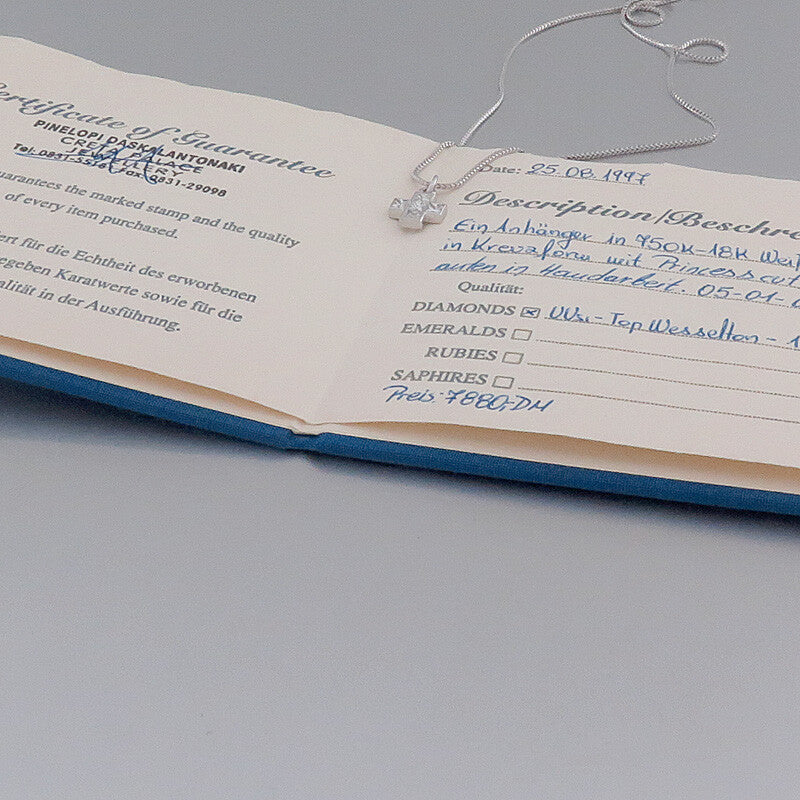 Certificate of Guarantee
PINELOPI DASKALANTONAKI
CRETA PALACE
JEWELLERY
Fax: 0831-29098
guarantees the marked stamp and the quality
of every item purchased.
für die Echtheit des erworbenen
Karatwerte sowie für die
in der Ausführung.
Date: 25.08.1997
Description/Beschre
Ein Anhänger in 750K-18K
in Kreuzform mit Princesscut
in Handarbeit. 05-01-
Qualität:
DIAMONDS ☒ VVSI-Top Wesselton - 1
EMERALDS
RUBIES
SAPHIRES
Preis: 7880,-DM